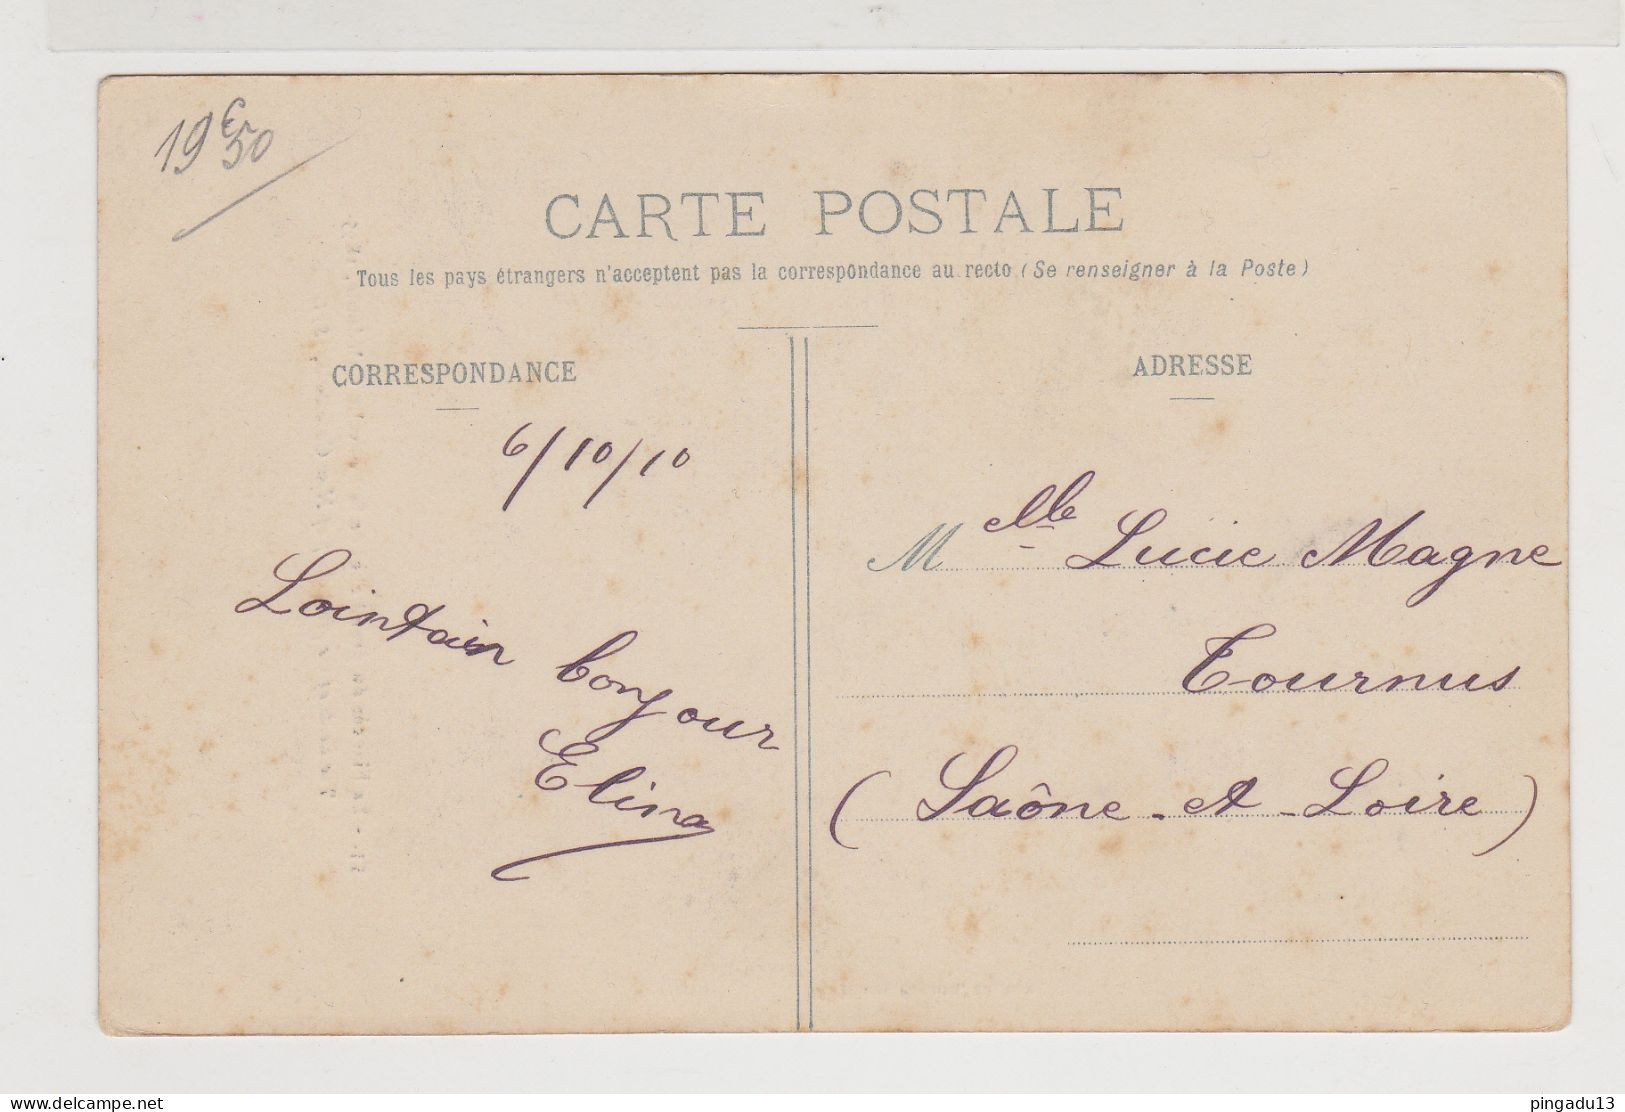 19€50
CARTE POSTALE
Tous les pays étrangers n'acceptent pas la correspondance au recto (Se renseigner à la Poste)
CORRESPONDANCE
6/10/10
Lointain bonjour
Elina
ADRESSE
Melle Lucie Magne
Tournus
(Saône-et-Loire)
delcampe.net
pingadu13